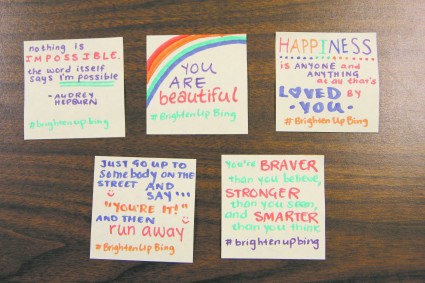 nothing is
IMPOSSIBLE.
the word itself
says I'm possible
- AUDREY
HEPBURN
#brightenupbing
YOU
ARE
beautiful
#BrightenUpBing
HAPPINESS
is ANYONE and
ANYTHING
at all that's
LOVED BY
- YOU -
#BrightenUpBing
JUST GO UP TO
Somebody ON THE
STREET AND
SAY...
"YOU'RE IT!"
AND THEN
run away
#BrightenUpBing
You're BRAVER
than you believe,
STRONGER
than you seem,
and SMARTER
than you think
#brightenupbing